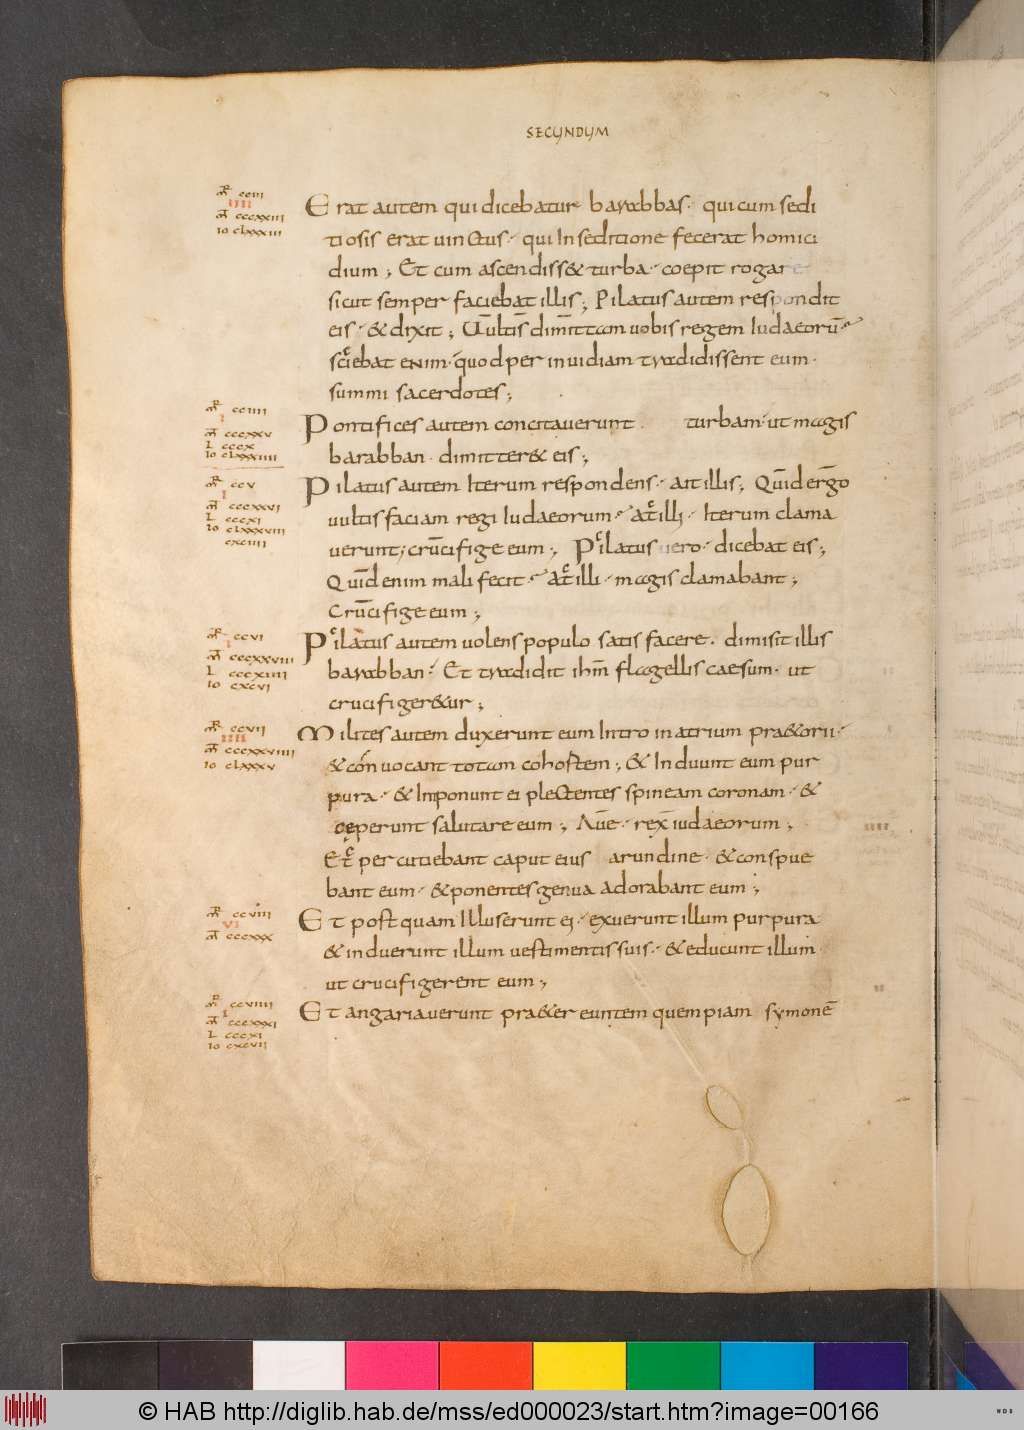 SECUNDUM
mR ccIII
IIII
mT cccxxIII
Io clxxxIII
Erat autem qui dicebatur barabbas · qui cum sedi
tiosis erat uinctus · qui In seditione fecerat homici
dium ; Et cum ascendiss& turba · coepit rogare
sicut semper faciebat illis ; Pilatus autem respondit
eis · & dixit ; Uultis dimittam uobis regem Iudaeorū
sciebat enim · quod per inuidiam tradidissent eum ·
summi sacerdotes ;
mR ccIIII
I
mT cccxxv
L cccx
Io clxxxIIII
Pontifices autem concitauerunt · turbam · ut magis
barabban · dimitter& eis ;
mR ccv
I
mT cccxxvI
L cccxI
Io clxxxvIII
cxcIIII
Pilatus autem Iterum respondens · ait illis ; Quid ergo
uultis faciam regi Iudaeorum · at illi · Iterum clama
uerunt ; crucifige eum ; Pilatus uero · dicebat eis ;
Quid enim mali fecit · at illi · magis clamabant ;
Crucifige eum ;
mR ccvI
I
mT cccxxvIII
L cccxIIII
Io cxcvI
Pilatus autem uolens populo satis facere . dimisit illis
barabban · Et tradidit ihm̄ flagellis caesum · ut
crucifiger&ur ;
mR ccvII
IIII
mT cccxxvIIII
Io clxxxv
Milites autem duxerunt eum Intro in atrium pra&orii ·
& conuocant totam cohortem ; & Induunt eum pur
pura · & Inponunt ei plectentes spineam coronam · &
ceperunt salutare eum ; Aue · rex iudaeorum ;
Et percutiebant caput eius arundine · & conspue
bant eum · & ponentes genua adorabant eum ;
mR ccvIII
VI
mT cccxxx
Et post quam Illuserunt ei · exuerunt illum purpura
& induerunt illum uestimentis suis · & educunt illum ·
ut crucifigerent eum ;
mR ccvIIII
I
mT cccxxxI
L cccxI
Io cxcvII
Et angariauerunt pra&er euntem quempiam symonē
© HAB http://diglib.hab.de/mss/ed000023/start.htm?image=00166
WDB